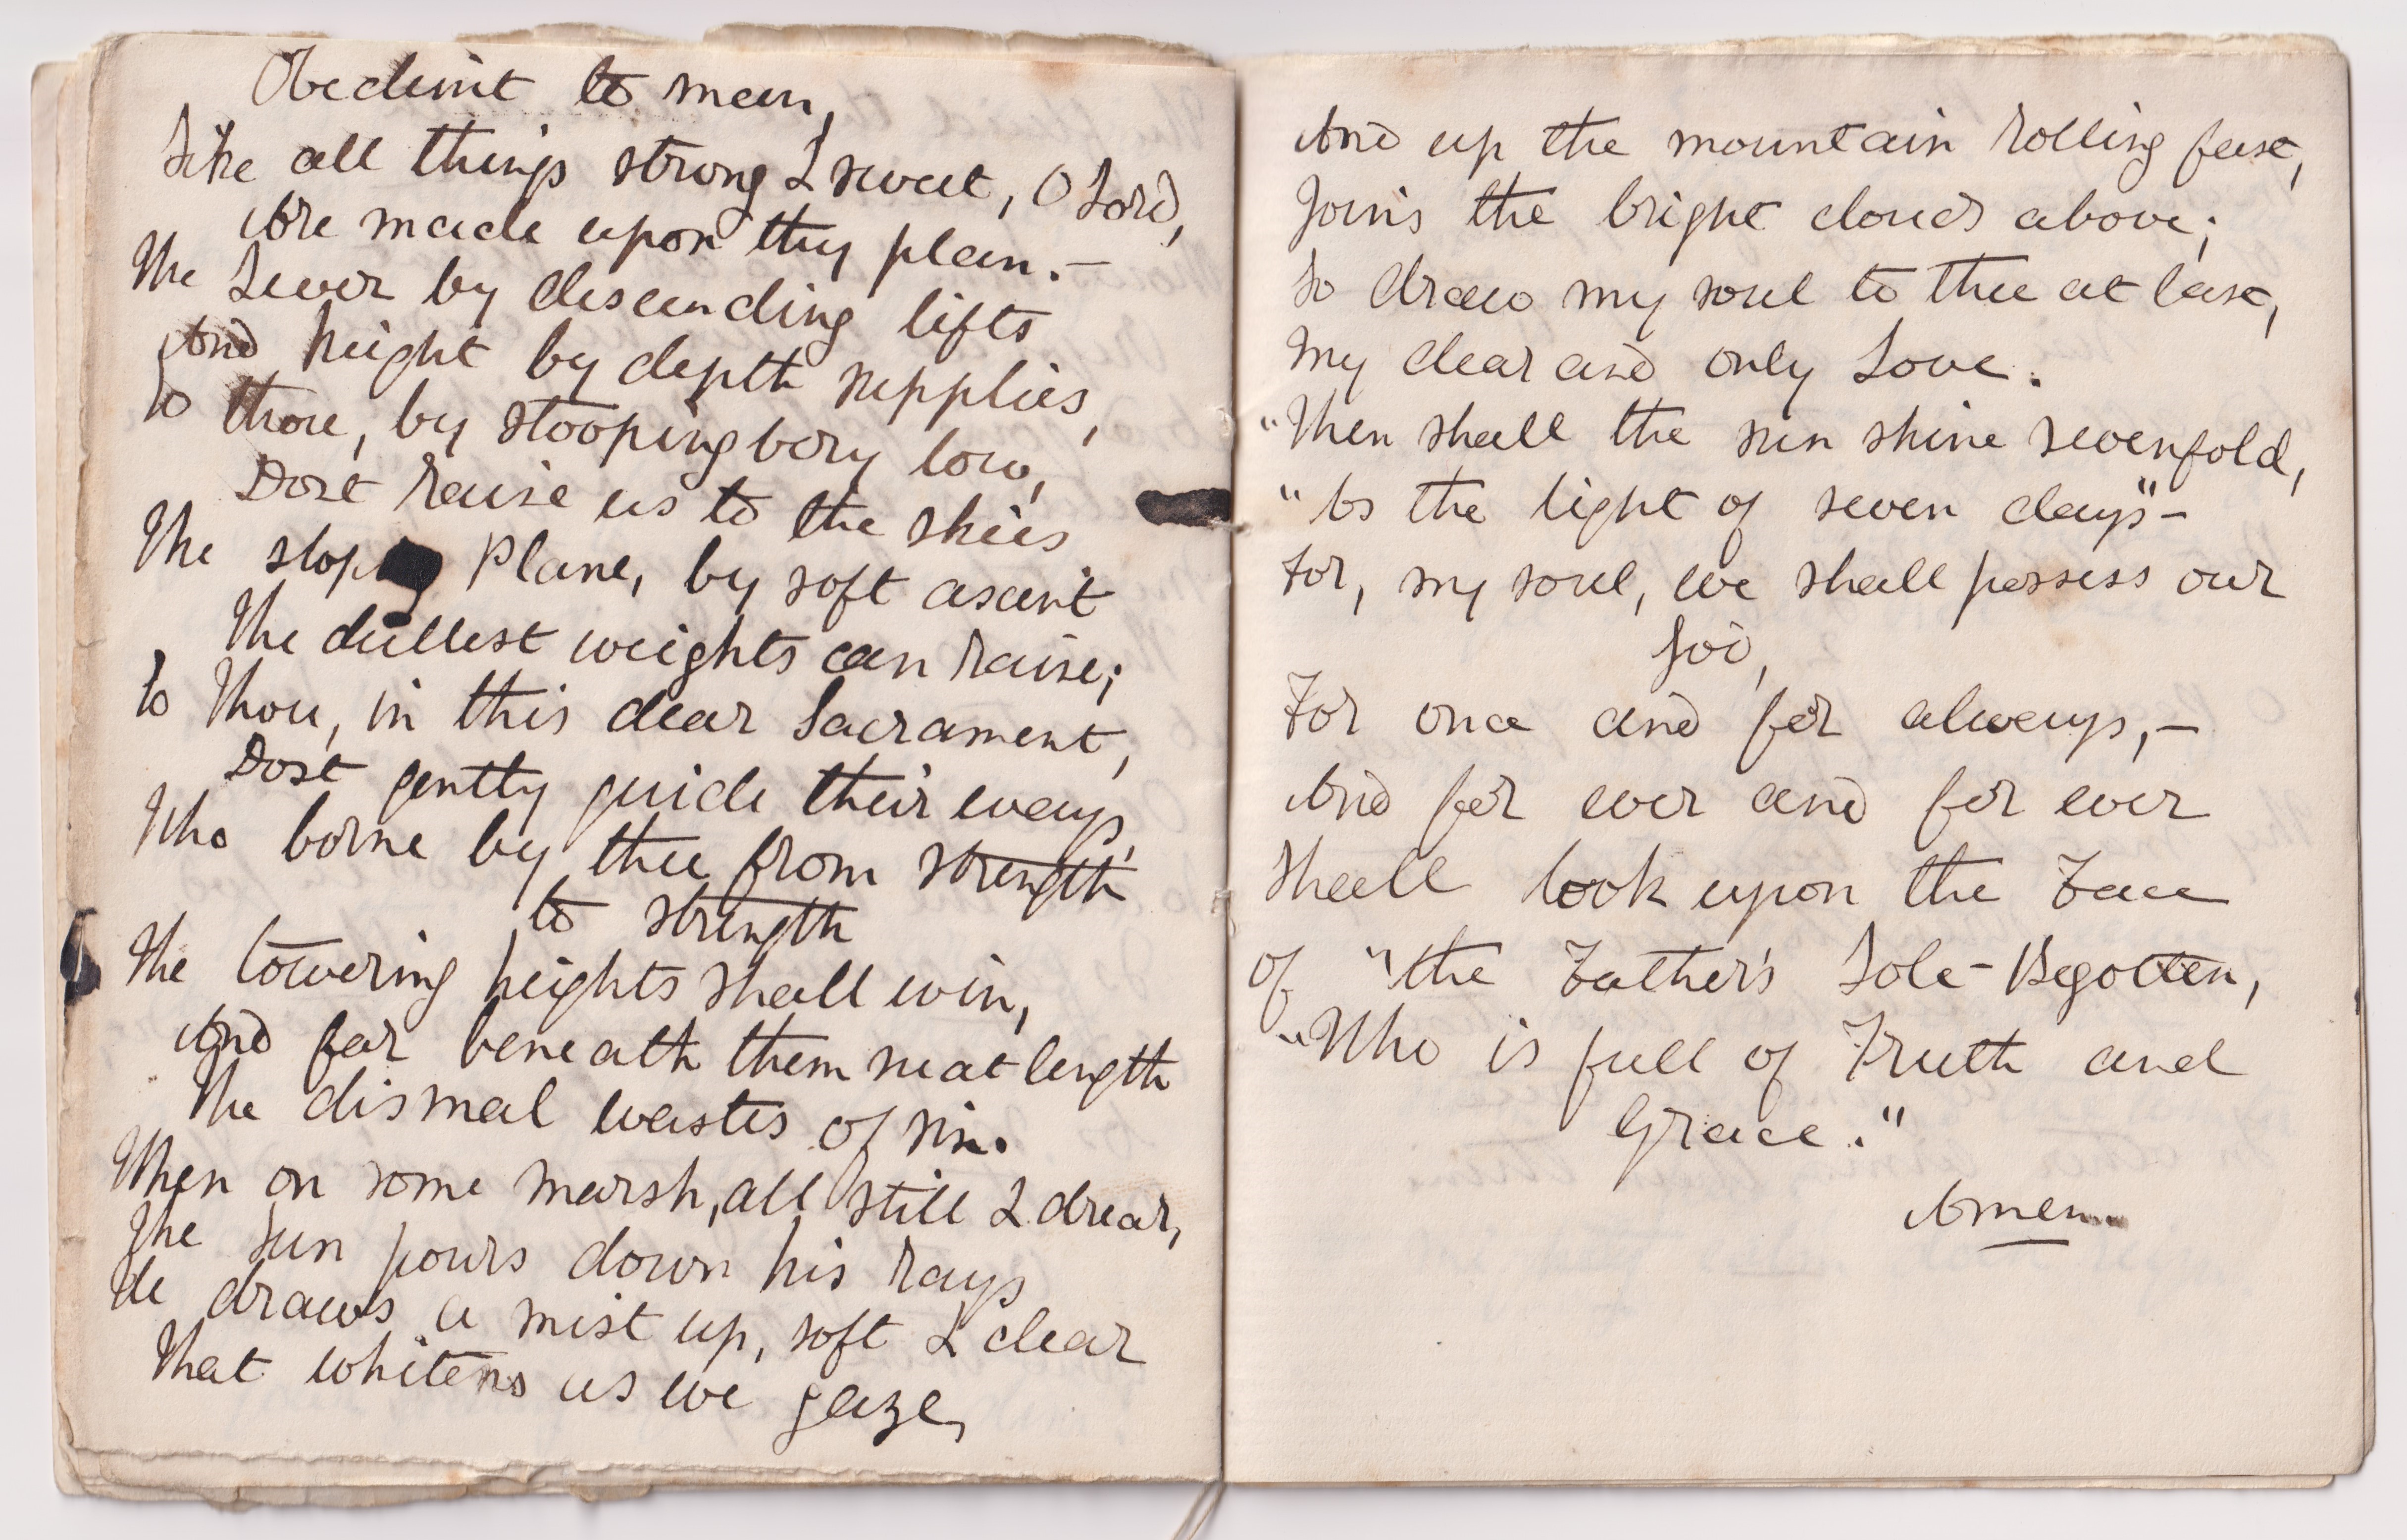 Obedient to man,
Like all things strong & sweet, O Lord,
Are made upon thy plan.—
The Lever by descending lifts
And height by depth supplies,
So thou, by stooping very low,
Dost raise us to the skies
The sloping Plane, by soft ascent
The dullest weights can raise;
So Thou, in this dear Sacrament,
Dost gently guide their ways,
Who borne by thee from strength
to strength
The towering heights shall win,
And far beneath them meat length
The dismal wastes of sin.
When on some marsh, all still & drear,
The Sun pours down his rays
He draws a mist up, soft & clear
That whitens as we gaze,
And up the mountain rolling fast,
Joins the bright clouds above;
So draw my soul to thee at last,
My dear and only Love.
"Then shall the sun shine sevenfold,
"As the light of seven days"—
For, my soul, we shall possess our
God,
For once and for always,—
And for ever and for ever
Shall look upon the Face
Of "the Father's Sole-Begotten,
"Who is full of Truth and
Grace."
Amen